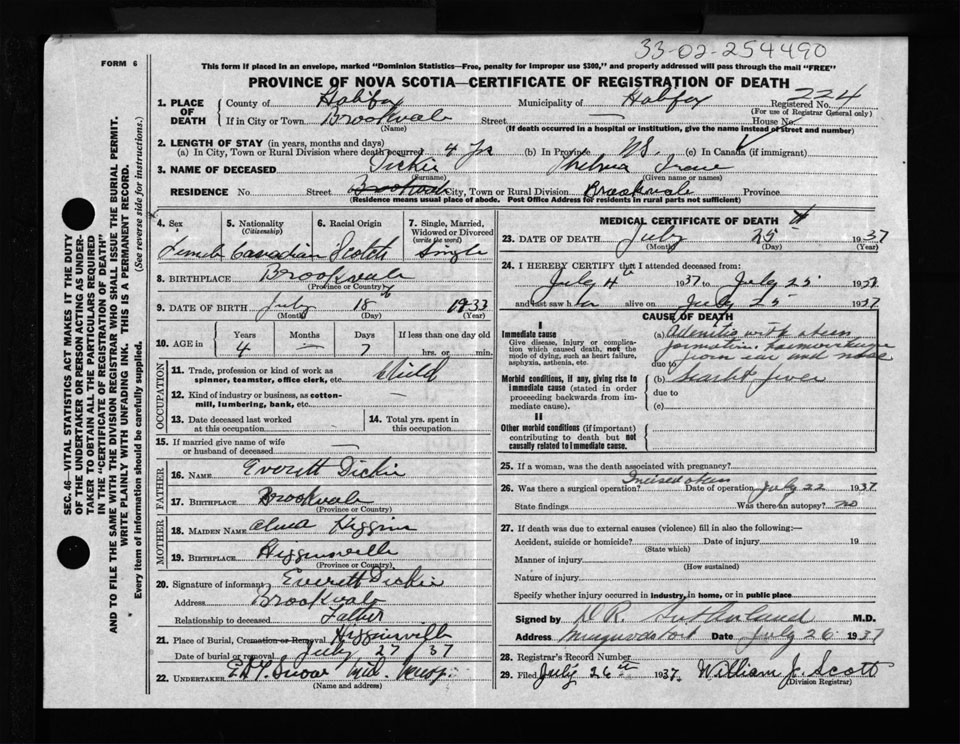 33-02-254490
FORM 6
This form if placed in an envelope, marked "Dominion Statistics—Free, penalty for improper use $300," and properly addressed will pass through the mail "FREE"
PROVINCE OF NOVA SCOTIA—CERTIFICATE OF REGISTRATION OF DEATH
1. PLACE OF DEATH County of Halifax Municipality of Halifax Registered No. 224
(For use of Registrar General only)
If in City or Town Brookvale Street House No.
(Name) (If death occurred in a hospital or institution, give the name instead of street and number)
2. LENGTH OF STAY (in years, months and days)
(a) In City, Town or Rural Division where death occurred 4 yrs (b) In Province NS. (c) In Canada (if immigrant)
3. NAME OF DECEASED Dickie Thelma
(Surname) (Given name or names)
RESIDENCE No. Street Brookvale City, Town or Rural Division Brookvale Province
(Residence means usual place of abode. Post Office Address for residents in rural parts not sufficient)
4. Sex 5. Nationality 6. Racial Origin 7. Single, Married, Widowed or Divorced
(Citizenship) (write the word)
Female Canadian Scotch Single
8. BIRTHPLACE Brookvale
(Province or Country)
9. DATE OF BIRTH July 18 1933
(Month) (Day) (Year)
10. AGE Years Months Days If less than one day old
4 — 7 hrs. or min.
OCCUPATION
11. Trade, profession or kind of work as spinner, teamster, office clerk, etc. Child
12. Kind of industry or business, as cotton-mill, lumbering, bank, etc. —
13. Date deceased last worked at this occupation 14. Total yrs. spent in this occupation.
15. If married give name of wife or husband of deceased —
FATHER
16. NAME Everett Dickie
17. BIRTHPLACE Brookvale
(Province or Country)
MOTHER
18. MAIDEN NAME Alma Higgins
19. BIRTHPLACE Higginsville
(Province or Country)
20. Signature of informant Everett Dickie
Address Brookvale
Relationship to deceased Father
21. Place of Burial, Cremation or Removal Higginsville
Date of burial or removal July 27 / 37
22. UNDERTAKER
(Name and address)
MEDICAL CERTIFICATE OF DEATH
23. DATE OF DEATH July 25th 1937
(Month) (Day) (Year)
24. I HEREBY CERTIFY that I attended deceased from:
July 4th 1937 to July 25 1937
and last saw her alive on July 25 1937
CAUSE OF DEATH
I
Immediate cause
Give disease, injury or complication which caused death, not the mode of dying, such as heart failure, asphyxia, asthenia, etc.
(a) Adenitis with
from ear and nose
due to
Morbid conditions, if any, giving rise to immediate cause (stated in order proceeding backwards from immediate cause).
(b) Scarlet fever
due to
(c)
II
Other morbid conditions (if important) contributing to death but not causally related to immediate cause.
25. If a woman, was the death associated with pregnancy?
26. Was there a surgical operation? Incised Date of operation July 22 1937
State findings Was there an autopsy? no
27. If death was due to external causes (violence) fill in also the following:—
Accident, suicide or homicide? Date of injury 19
(State which)
Manner of injury
(How sustained)
Nature of injury
Specify whether injury occurred in industry, in home, or in public place
Signed by D R Sutherland M.D.
Address Musquodoboit Date July 26 1937
28. Registrar's Record Number
29. Filed July 26th 1937. William J. Scott
(Division Registrar)
SEC. 46—VITAL STATISTICS ACT MAKES IT THE DUTY
OF THE UNDERTAKER OR PERSON ACTING AS UNDER-
TAKER TO OBTAIN ALL THE PARTICULARS REQUIRED
IN THE "CERTIFICATE OF REGISTRATION OF DEATH"
AND TO FILE THE SAME WITH THE DIVISION REGISTRAR WHO SHALL ISSUE THE BURIAL PERMIT.
WRITE PLAINLY WITH UNFADING INK. THIS IS A PERMANENT RECORD.
Every item of information should be carefully supplied. (See reverse side for instructions.)